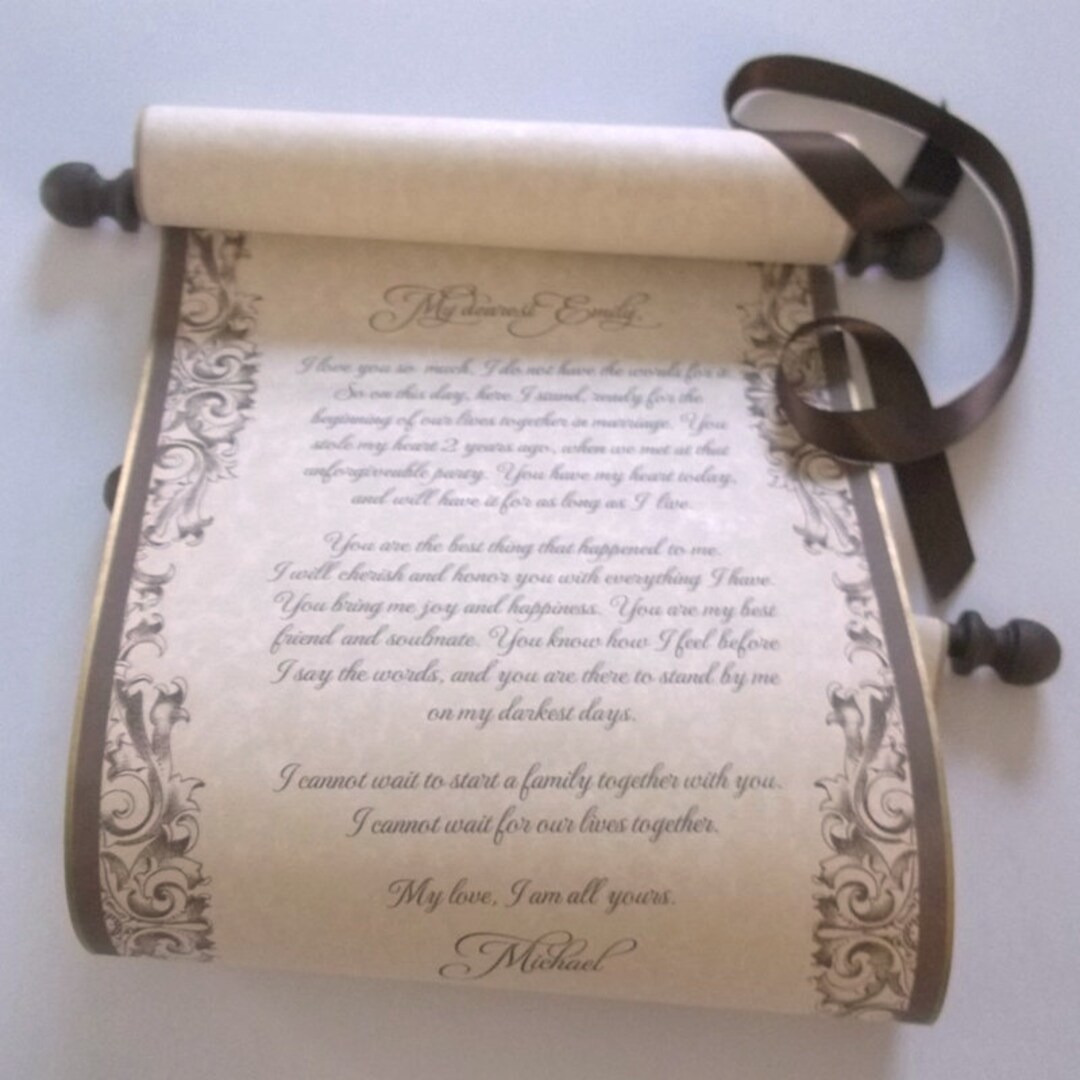 My dearest Emily,
I love you so much, I do not have the words for it.
So on this day, here I stand, ready for the
beginning of our lives together in marriage. You
stole my heart 2 years ago, when we met at that
unforgiveable party. You have my heart today,
and will have it for as long as I live.
You are the best thing that happened to me.
I will cherish and honor you with everything I have.
You bring me joy and happiness. You are my best
friend and soulmate. You know how I feel before
I say the words, and you are there to stand by me
on my darkest days.
I cannot wait to start a family together with you.
I cannot wait for our lives together.
My love, I am all yours.
Michael